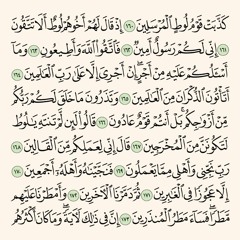 كَذَّبَتْ قَوْمُ لُوطٍ ٱلْمُرْسَلِينَ ١٦٠ إِذْ قَالَ لَهُمْ أَخُوهُمْ لُوطٌ أَلَا تَتَّقُونَ
١٦١ إِنِّي لَكُمْ رَسُولٌ أَمِينٌ ١٦٢ فَٱتَّقُوا۟ ٱللَّهَ وَأَطِيعُونِ ١٦٣ وَمَآ
أَسْـَٔلُكُمْ عَلَيْهِ مِنْ أَجْرٍ إِنْ أَجْرِيَ إِلَّا عَلَىٰ رَبِّ ٱلْعَٰلَمِينَ ١٦٤
أَتَأْتُونَ ٱلذُّكْرَانَ مِنَ ٱلْعَٰلَمِينَ ١٦٥ وَتَذَرُونَ مَا خَلَقَ لَكُمْ رَبُّكُم
مِّنْ أَزْوَٰجِكُم بَلْ أَنتُمْ قَوْمٌ عَادُونَ ١٦٦ قَالُوا۟ لَئِن لَّمْ تَنتَهِ يَٰلُوطُ
لَتَكُونَنَّ مِنَ ٱلْمُخْرَجِينَ ١٦٧ قَالَ إِنِّي لِعَمَلِكُم مِّنَ ٱلْقَالِينَ ١٦٨
رَبِّ نَجِّنِي وَأَهْلِي مِمَّا يَعْمَلُونَ ١٦٩ فَنَجَّيْنَٰهُ وَأَهْلَهُۥٓ أَجْمَعِينَ ١٧٠
إِلَّا عَجُوزًا فِي ٱلْغَٰبِرِينَ ١٧١ ثُمَّ دَمَّرْنَا ٱلْـَٔاخَرِينَ ١٧٢ وَأَمْطَرْنَا عَلَيْهِم
مَّطَرًا فَسَآءَ مَطَرُ ٱلْمُنذَرِينَ ١٧٣ إِنَّ فِي ذَٰلِكَ لَـَٔايَةً وَمَا كَانَ أَكْثَرُهُم